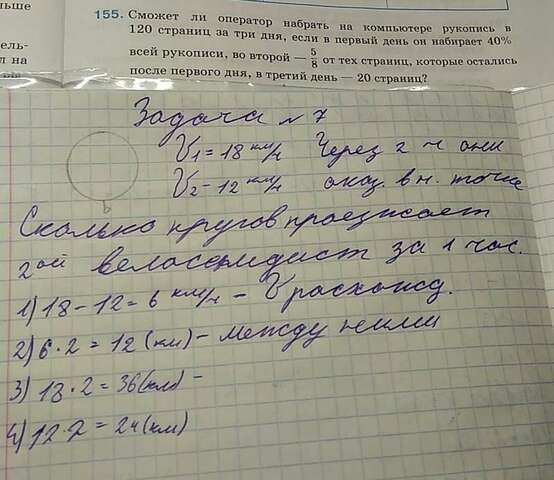 льше
ель-
л на
155. Сможет ли оператор набрать на компьютере рукопись в
120 страниц за три дня, если в первый день он набирает 40%
всей рукописи, во второй — 5/8 от тех страниц, которые остались
после первого дня, в третий день — 20 страниц?
Задача № 7
V1 = 18 км/ч Через 2 ч они
V2 - 12 км/ч оказ. в н. точке
Сколько кругов проезжает
2ой велосипедист за 1 час.
1) 18 - 12 = 6 км/ч - V расхожд.
2) 6 · 2 = 12 (км) - между ними
3) 18 · 2 = 36 (км) -
4) 12 · 2 = 24 (км)